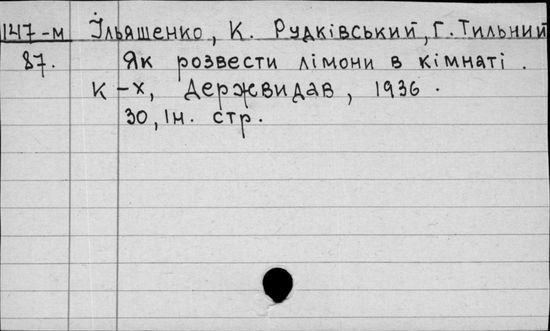 147-м Ільяшенко, К. Рудківський, Г. Тильний
87. Як розвести лімони в кімнаті.
К-х, Держвидав, 1936.
30, Ін. стр.